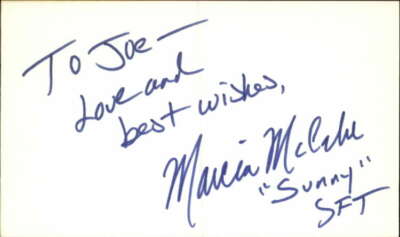 To Joe—
Love and
best wishes,
Marcia McCabe
"Sunny"
SFT